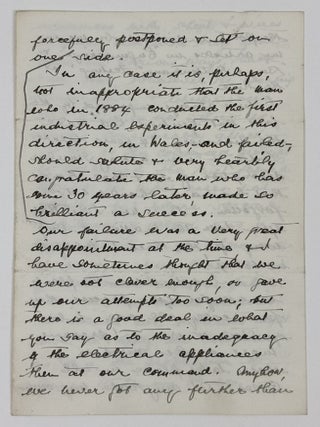 forcefully postponed & set on
one side.
In any case it is, perhaps,
not inappropriate that the man
who in 1884 conducted the first
industrial experiments in this
direction, in Wales—and failed—,
should salute & very heartily
congratulate the man who has
some 30 years later, made so
brilliant a success.
Our failure was a very great
disappointment at the time & I
have sometimes thought that we
were not clever enough, or gave
up our attempts too soon; but
there is a good deal in what
you say as to the inadequacy
of the electrical appliances
then at our command. Anyhow,
we never got any further than